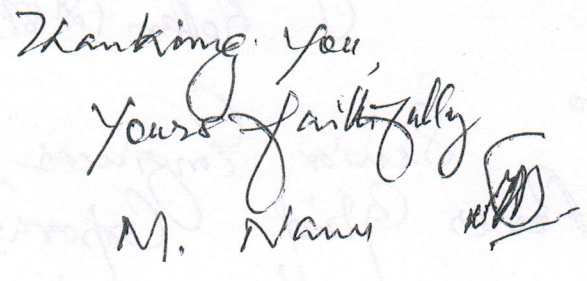 Thanking You,
Yours faithfully
M. Nanu